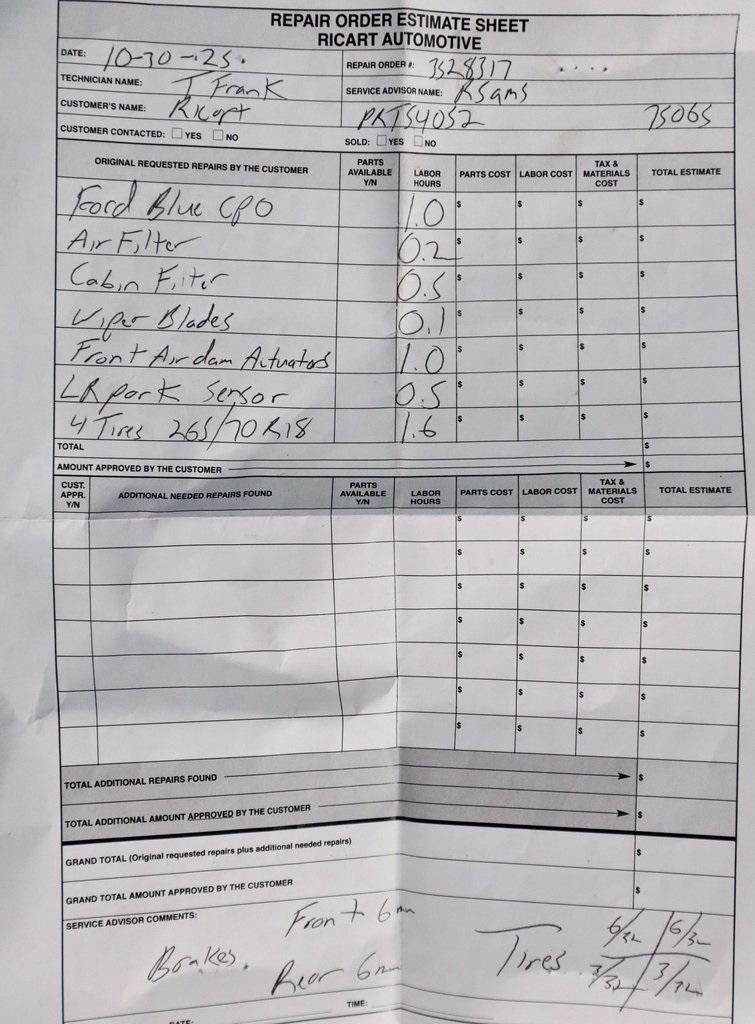 REPAIR ORDER ESTIMATE SHEET
RICART AUTOMOTIVE
DATE: 10-30-25. REPAIR ORDER #: 3528317
TECHNICIAN NAME: T Frank SERVICE ADVISOR NAME: RSams
CUSTOMER'S NAME: Ricart PRTS4052 75065
CUSTOMER CONTACTED: YES NO SOLD: YES NO
ORIGINAL REQUESTED REPAIRS BY THE CUSTOMER PARTS AVAILABLE Y/N LABOR HOURS PARTS COST LABOR COST TAX & MATERIALS COST TOTAL ESTIMATE
Ford Blue CPO 1.0 $ $ $ $
Air Filter 0.2 $ $ $ $
Cabin Filter 0.5 $ $ $ $
Viper Blades 0.1 $ $ $ $
Front Air dam Actuators 1.0 $ $ $ $
LR park Sensor 0.5 $ $ $ $
4 Tires 265/70R18 1.6 $ $ $ $
TOTAL $
AMOUNT APPROVED BY THE CUSTOMER $
CUST. APPR. Y/N ADDITIONAL NEEDED REPAIRS FOUND PARTS AVAILABLE Y/N LABOR HOURS PARTS COST LABOR COST TAX & MATERIALS COST TOTAL ESTIMATE
$ $ $ $
$ $ $ $
$ $ $ $
$ $ $ $
$ $ $ $
$ $ $ $
$ $ $ $
TOTAL ADDITIONAL REPAIRS FOUND $
TOTAL ADDITIONAL AMOUNT APPROVED BY THE CUSTOMER $
GRAND TOTAL (Original requested repairs plus additional needed repairs) $
GRAND TOTAL AMOUNT APPROVED BY THE CUSTOMER $
SERVICE ADVISOR COMMENTS:
Front 6mm
Brakes. Rear 6mm
Tires 6/32 6/32
3/32 3/32
DATE: TIME: